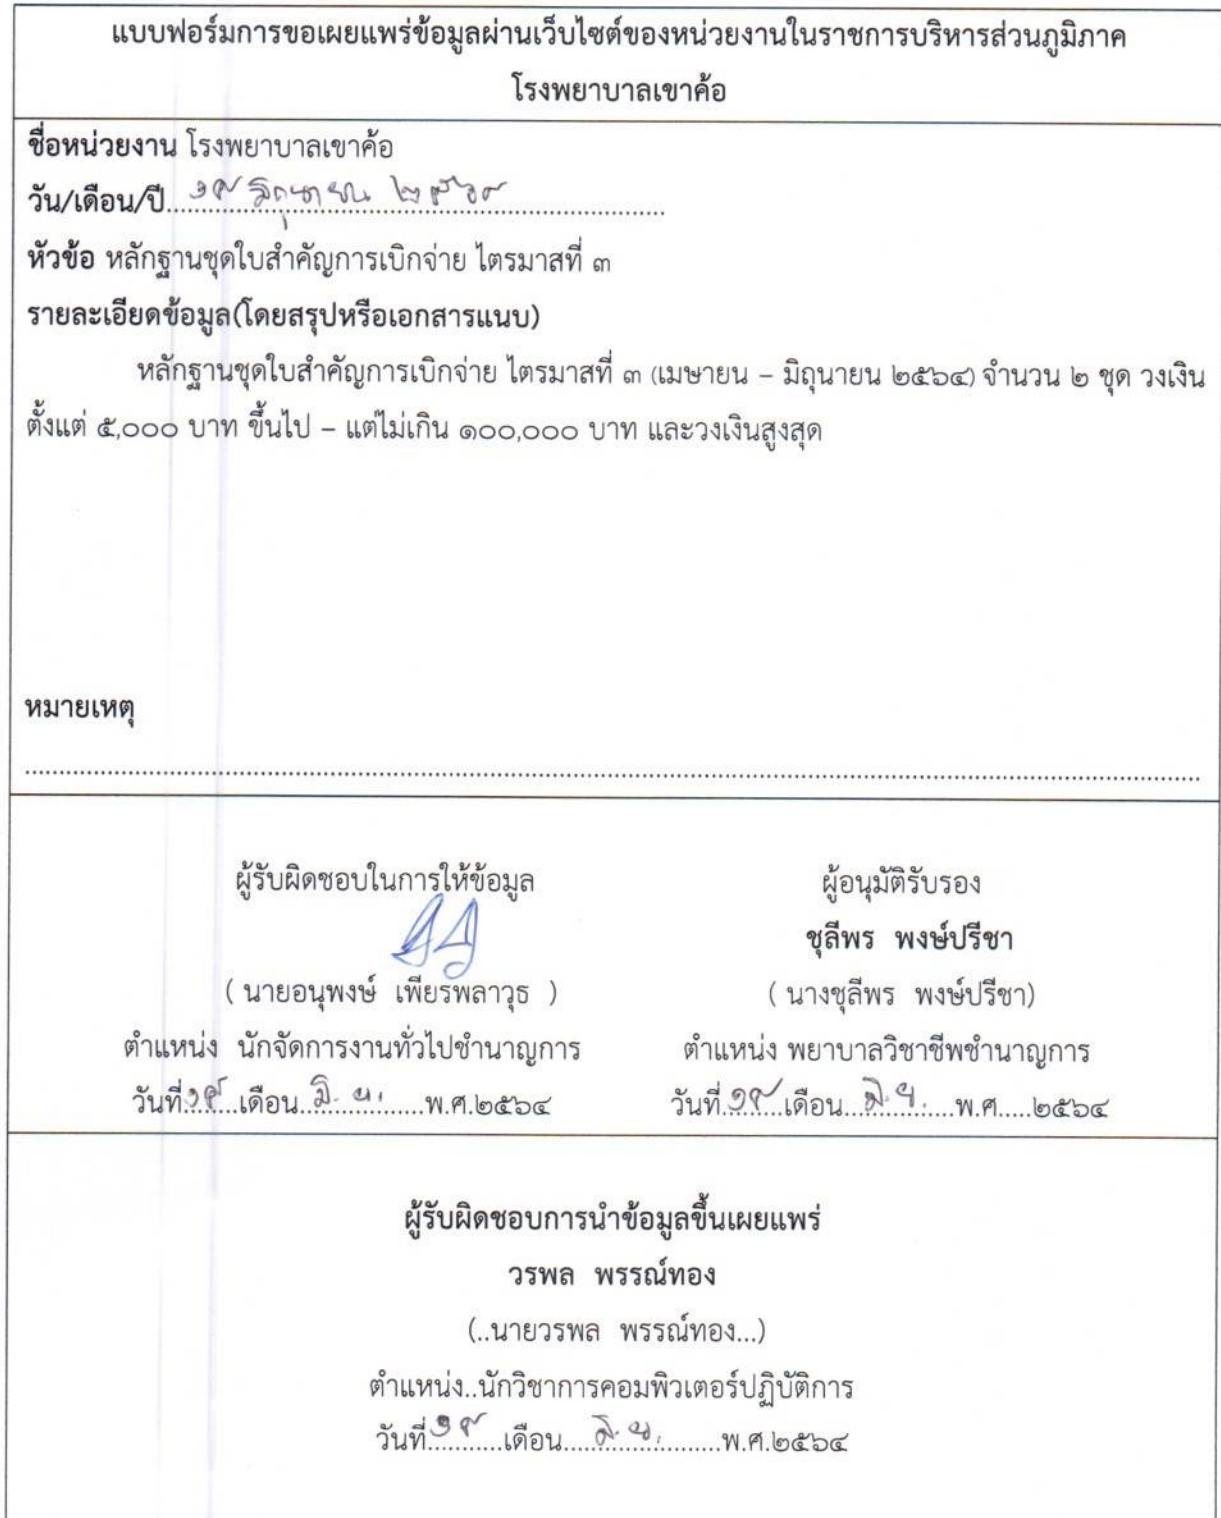 แบบฟอร์มการขอเผยแพร่ข้อมูลผ่านเว็บไซต์ของหน่วยงานในราชการบริหารส่วนภูมิภาค
โรงพยาบาลเขาค้อ
ชื่อหน่วยงาน โรงพยาบาลเขาค้อ
วัน/เดือน/ปี.. มิถุนายน ๒๕๖๔
หัวข้อ หลักฐานชุดใบสำคัญการเบิกจ่าย ไตรมาสที่ ๓
รายละเอียดข้อมูล(โดยสรุปหรือเอกสารแนบ)
หลักฐานชุดใบสำคัญการเบิกจ่าย ไตรมาสที่ ๓ (เมษายน – มิถุนายน ๒๕๖๔) จำนวน ๒ ชุด วงเงิน
ตั้งแต่ ๕,๐๐๐ บาท ขึ้นไป – แต่ไม่เกิน ๑๐๐,๐๐๐ บาท และวงเงินสูงสุด
หมายเหตุ
ผู้รับผิดชอบในการให้ข้อมูล ผู้อนุมัติรับรอง
ชุลีพร พงษ์ปรีชา
( นายอนุพงษ์ เพียรพลาวุธ ) ( นางชุลีพร พงษ์ปรีชา)
ตำแหน่ง นักจัดการงานทั่วไปชำนาญการ ตำแหน่ง พยาบาลวิชาชีพชำนาญการ
วันที่.....เดือน...มิ. ย......พ.ศ.๒๕๖๔ วันที่.....เดือน...มิ.ย......พ.ศ.....๒๕๖๔
ผู้รับผิดชอบการนำข้อมูลขึ้นเผยแพร่
วรพล พรรณ์ทอง
(..นายวรพล พรรณ์ทอง...)
ตำแหน่ง..นักวิชาการคอมพิวเตอร์ปฏิบัติการ
วันที่...........เดือน....มิ.ย.........พ.ศ.๒๕๖๔